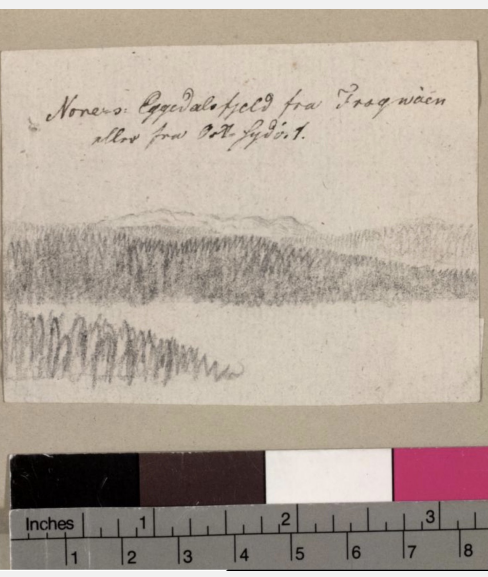 Norefs: Eggedalsfjeld fra Frognwåen
eller fra Ost-Sydost.
Inches 1 2 3
1 2 3 4 5 6 7 8